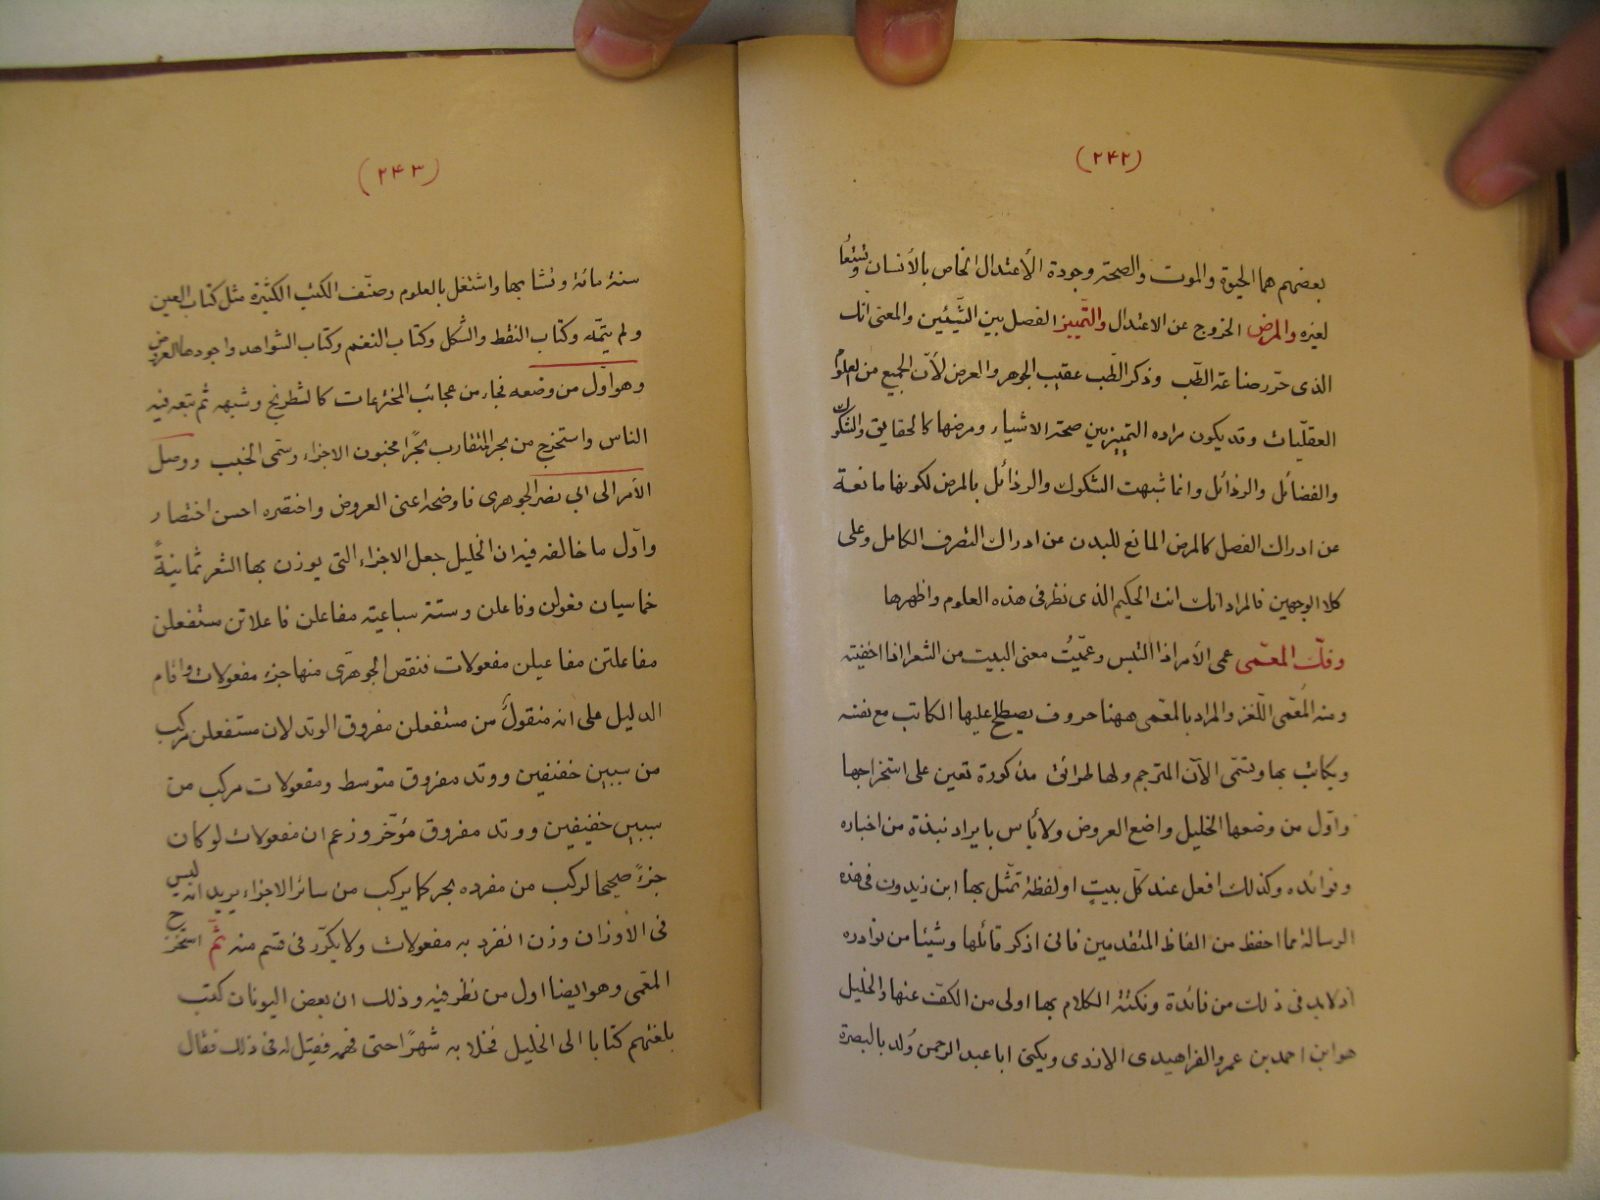 (٢٤٢)
بعضهم هما الحيوة والموت والصحة وجودة الأعتدال الخاص بالأنسان وتتبعا
لغيره والمرض الخروج عن الاعتدال والتّمييز الفصل بين الشّيئين والمعنى انّك
الذى حرّر صناعة الطّب وذكر الطّب عقيب الجوهر والعرض لأنّ الجميع من العلوم
العقليّات وقد يكون مراده التمييز بين صحة الاشياء ومرضها كالحقايق والشكوك
والفضائل والرذائل وانما شبهت الشكوك والرذائل بالمرض لكونها مانعة
عن ادراك الفصل كالمرض المانع للبدن عن ادراك التصرف الكامل وعلى
كلا الوجهين فالمراد انك انت الحكيم الذى نظر فى هذه العلوم واظهرها
وفكّ المعمّى عمى الأمر اذا التبس وعمّيتُ معنى البيت من الشعر اذا اخفيته
ومنه المُعمّى اللّغز والمراد بالمعمّى ههنا حروف يصطلح عليها الكاتب مع نفسه
ويكاتب بها ويسمّى الآن المترجم ولها طرائق مذكورة تعين على استخراجها
واوّل من وضعها الخليل واضع العروض ولا بأس بايراد نبذة من اخباره
وفوائده وكذلك افعل عند كلّ بيتٍ او لفظة تمثّل بها ابن زيدون فى هذه
الرسالة مما احفظ من الفاظ المتقدمين فانى اذكر قائلها وشيئا من نوادره
اذ لابد فى ذلك من فائدة ونكتة الكلام بها اولى من الكفّ عنها والخليل
هو ابن احمد بن عمرو الفراهيدى الازدى ويكنى ابا عبد الرحمن وُلد بالبصرة
(٢٤٣)
سنة مائة ونشا بها واشتغل بالعلوم وصنّف الكتب الكثيرة مثل كتاب العين
ولم يتمّه وكتاب النقط والشّكل وكتاب النغم وكتاب الشواهد واجودها العروض
وهو اوّل من وضعه فجاء من عجائب المخترعات كالشطرنج وشبهه ثم تبعه فيه
الناس واستخرج من بحر المتقارب بحرًا مخبون الاجزاء وسمّى الخبب ووصل
الأمر الى ابى نصر الجوهرى فاوضحه اعنى العروض واختصره احسن اختصار
واوّل ما خالفه فيه ان الخليل جعل الاجزاء التى يوزن بها الشعر ثمانيةً
خماسيان فعولن وفاعلن وستة سباعيته مفاعلن فاعلاتن مستفعلن
مفاعلتن مفاعيلن مفعولات فنقص الجوهرى منها جزء مفعولات واقام
الدليل على انه منقولٌ من مستفعلن مفروق الوتد لان مستفعلن مركب
من سببين خفيفين ووتد مفروق متوسط ومفعولات مركب من
سببين خفيفين ووتد مفروق مؤخّر وزعم ان مفعولات لو كان
جزءً صحيحا لركب من مفرده بحر كما يركب من سائر الاجزاء يريد انه ليس
فى الأوزان وزن انفرد به مفعولات ولا يكرّر فى قسم منه ثمّ استخرج
المعّمى وهو ايضا اول من نظر فيه وذلك ان بعض اليونان كتب
بلغتهم كتابا الى الخليل فخلا به شهرًا حتى فهمه فقيل له فى ذلك فقال